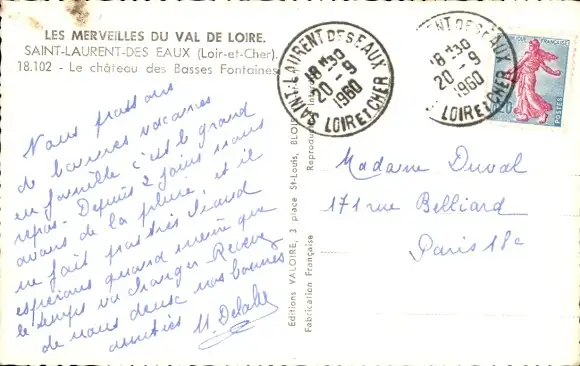 LES MERVEILLES DU VAL DE LOIRE.
SAINT-LAURENT-DES EAUX (Loir-et-Cher).
18.102 - Le château des Basses Fontaines
Nous passons
de bonnes vacances
en famille c'est le grand
repos. Depuis 2 jours nous
avons de la pluie, et il
ne fait pas très chaud
espérons quand même que
le temps va changer Recevez
de nous deux nos bonnes
amitiés
Editions VALOIRE, 3 place St-Louis, BLOIS
Fabrication Française
SAINT-LAURENT DES EAUX
18H30
20-9
1960
LOIR ET CHER
ST DES EAUX
18H30
20-9
1960
LOIR ET CHER
REPUBLIQUE FRANÇAISE
0,20
POSTES
Madame Duval
171 rue Belliard
Paris 18e